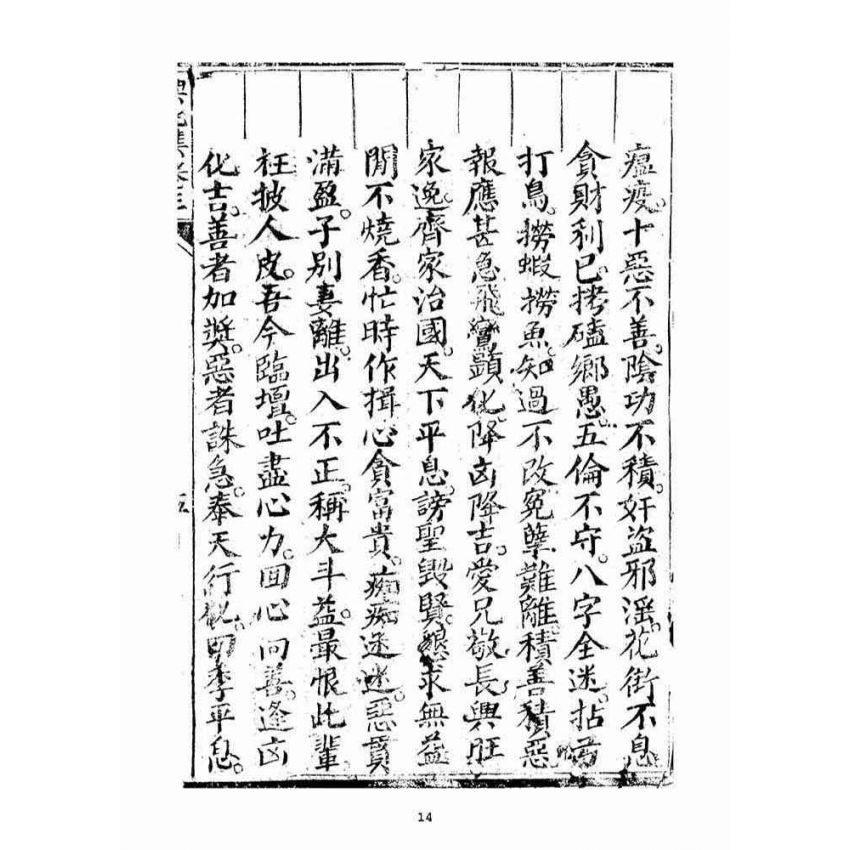 瘟疫。十惡不善。陰功不積。奸盜邪淫。花街不息
貪財利己。拷磕鄉愚。五倫不守。八字全迷。拈
打鳥。撈蝦撈魚。知過不改。冤孽難離。積善積惡
報應甚急。飛鸞顯化。降凶降吉。愛兄敬長。興旺
家逸。齊家治國。天下平息。謗聖毀賢。求無益
閒不燒香。忙時作揖。心貪富貴。痴迷。惡貫
滿盈。子別妻離。出入不正。稱大斗益。最恨此輩。
枉披人皮。吾今臨壇。吐盡心力。囬心向善。逢凶
化吉。善者加獎。惡者誅急。奉天行化。四季平息。
五
14